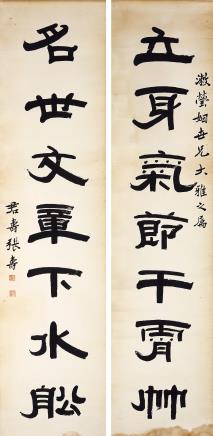 澂螢姻世兄大雅之屬
立身氣節干霄竹
名世文章下水舩
君壽張壽